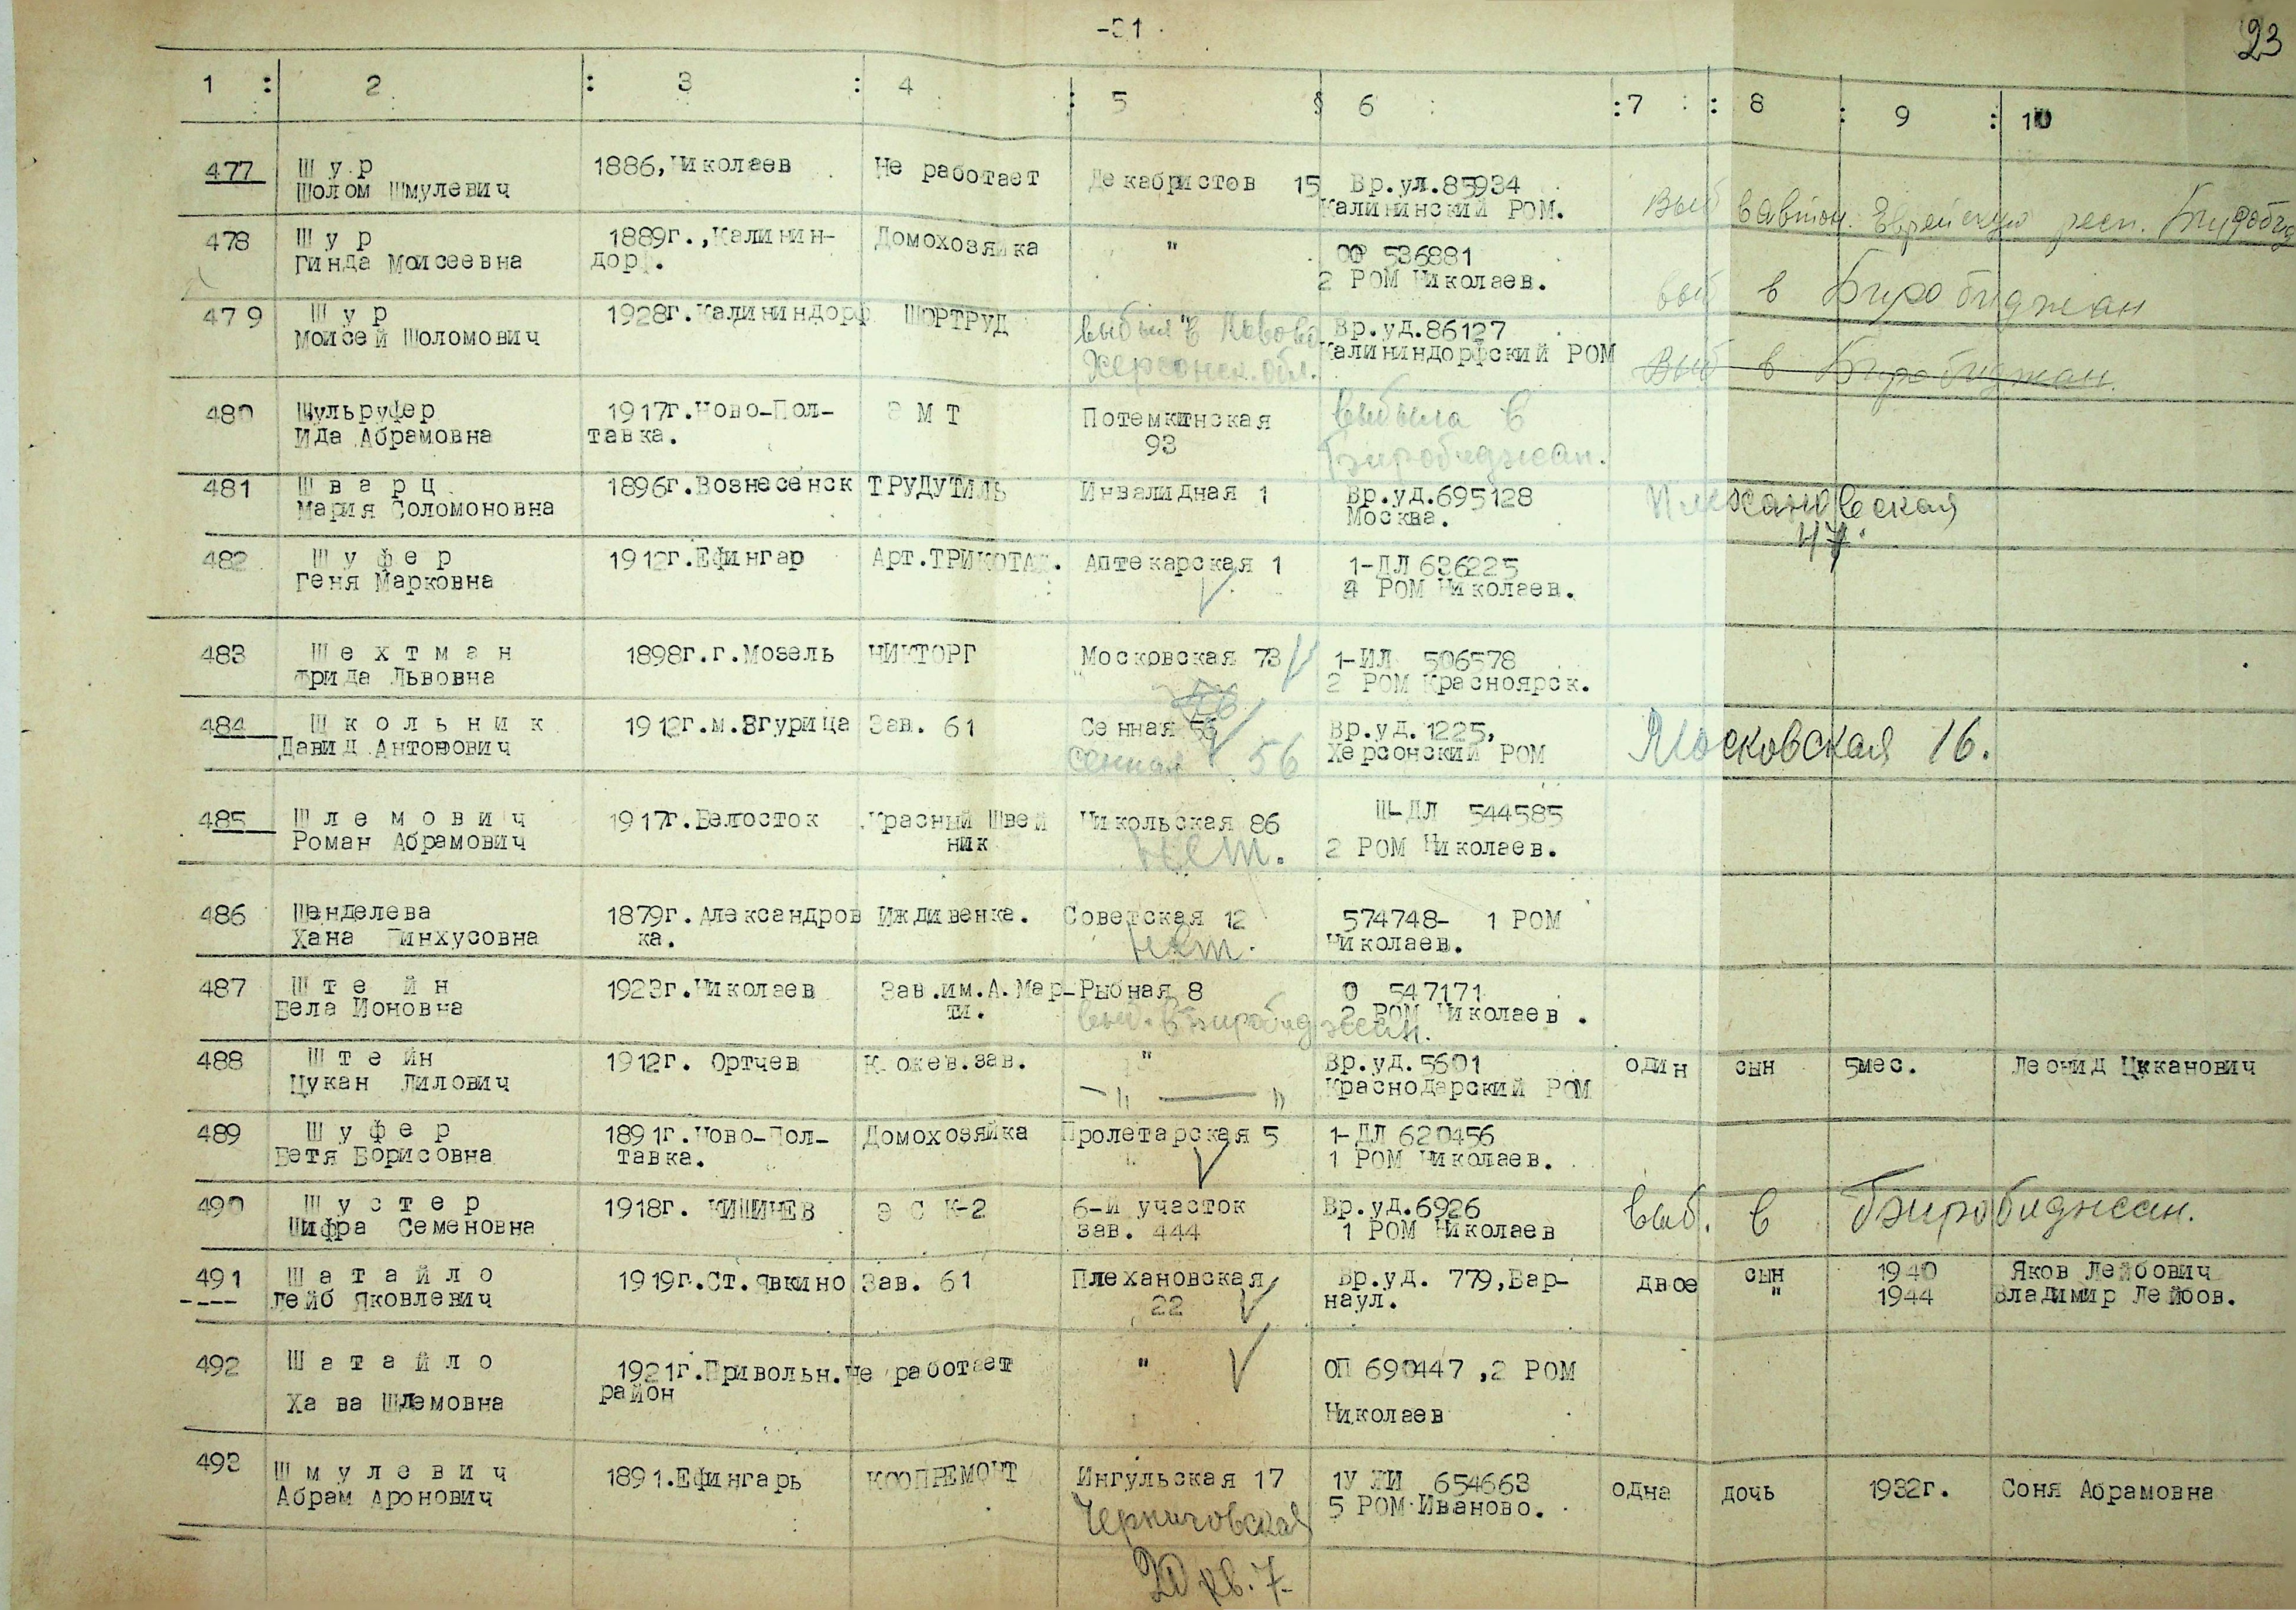 -31
23
1 : 2 : 3 : 4 : 5 6 : :7 : : 8 : 9 : 10
477 Шур 1886, Николаев Не работает Декабристов 15 Вр.уд.85934
Шолом Шмулевич Калининский РОМ.
Выб в автон. Еврейскую респ. Биробид
478 Шур 1889г.,Калинин- Домохозяйка " ОР 536881
Гинда Моисеевна дорф. 2 РОМ Николаев.
выб в Биробиджан
479 Шур 1928г.Калининдорф ШОРТРУД " Вр.уд.86127
Моисей Шоломович Калининдорфский РОМ
выбыл в Львово
Херсонск. обл.
Выб в Биробиджан.
480 Шульруфер 1917г.Ново-Пол- Э М Т Потемкинская
Ида Абрамовна тавка. 93
выбыла в
Биробиджан.
481 Шварц 1896г.Вознесенск ТРУДУТИЛЬ Инвалидная 1 Вр.уд.695128
Мария Соломоновна Москва.
Плехановская
47.
482 Шуфер 1912г.Ефингар Арт.ТРИКОТАЖ. Аптекарская 1 1-ДЛ 636225
Геня Марковна 4 РОМ Николаев.
483 Шехтман 1898г.г.Мозель НИКТОРГ Московская 73 1-ИЛ 506578
Фрида Львовна 2 РОМ Красноярск.
484 Школьник 1912г.м.Згурица Зав. 61 Сенная 56 Вр.уд.1225,
Давид Антонович Херсонский РОМ
сенная 56
Московская 16.
485 Шлемович 1917г.Белосток Красный Швей Никольская 86 Ш-ДЛ 544585
Роман Абрамович ник 2 РОМ Николаев.
нет.
486 Шенделева 1879г.Александров Иждивенка. Советская 12 574748- 1 РОМ
Хана Пинхусовна ка. Николаев.
нет.
487 Штейн 1923г.Николаев Зав.им.А.Мар- Рыбная 8 0 547171
Бела Ионовна ти. 2 РОМ Николаев.
выб. в Биробиджан.
488 Штейн 1912г. Ортчев Кокев.зав. " Вр.уд.5601 один сын 5мес. Леонид Цукканович
Цукан Лилович Краснодарский РОМ
— " — "
489 Шуфер 1891г.Ново-Пол- Домохозяйка Пролетарская 5 1-ДЛ 620456
Бетя Борисовна тавка. 1 РОМ Николаев.
490 Шустер 1918г. КИШИНЕВ Э С К-2 6-й участок Вр.уд.6926
Шифра Семеновна зав. 444 1 РОМ Николаев
выб. в Биробиджан.
491 Шатайло 1919г.Ст.Явкино Зав. 61 Плехановская Вр.уд. 779,Бар- двое сын 1940 Яков Лейбович
Лейб Яковлевич 22 наул. " 1944 Владимир Лейбов.
492 Шатайло 1921г.Привольн. Не работает " ОП 690447 ,2 РОМ
район
Хава Шлемовна Николаев
493 Шмулевич 1891.Ефингарь КООПРЕМОНТ Ингульская 17 1У ЖИ 654663 одна дочь 1932г. Соня Абрамовна
Абрам Аронович 5 РОМ Иваново.
Черниговская
20 кв. 7.